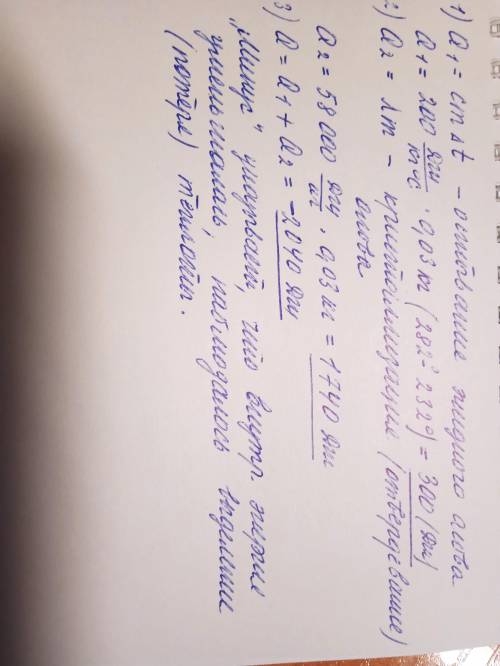 1) Q₁ = cmΔt – остывание жидкого олова
Q₁ = 200 Дж/кг°С · 0,03 кг (282° - 232°) = 300 (Дж)
2) Q₂ = λm – кристаллизация (отвердевание)
олова
Q₂ = 58 000 Дж/кг · 0,03 кг = 1740 Дж
3) Q = Q₁ + Q₂ = -2040 Дж
„Минус" указывает, что внутр. энергия
уменьшалась, наблюдалось выделение
(потеря) теплоты.